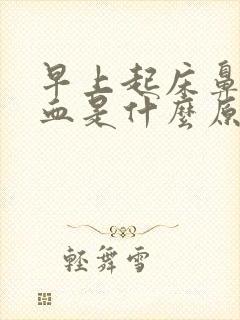 早上起床鼻
血是什麼原
輕舞雪